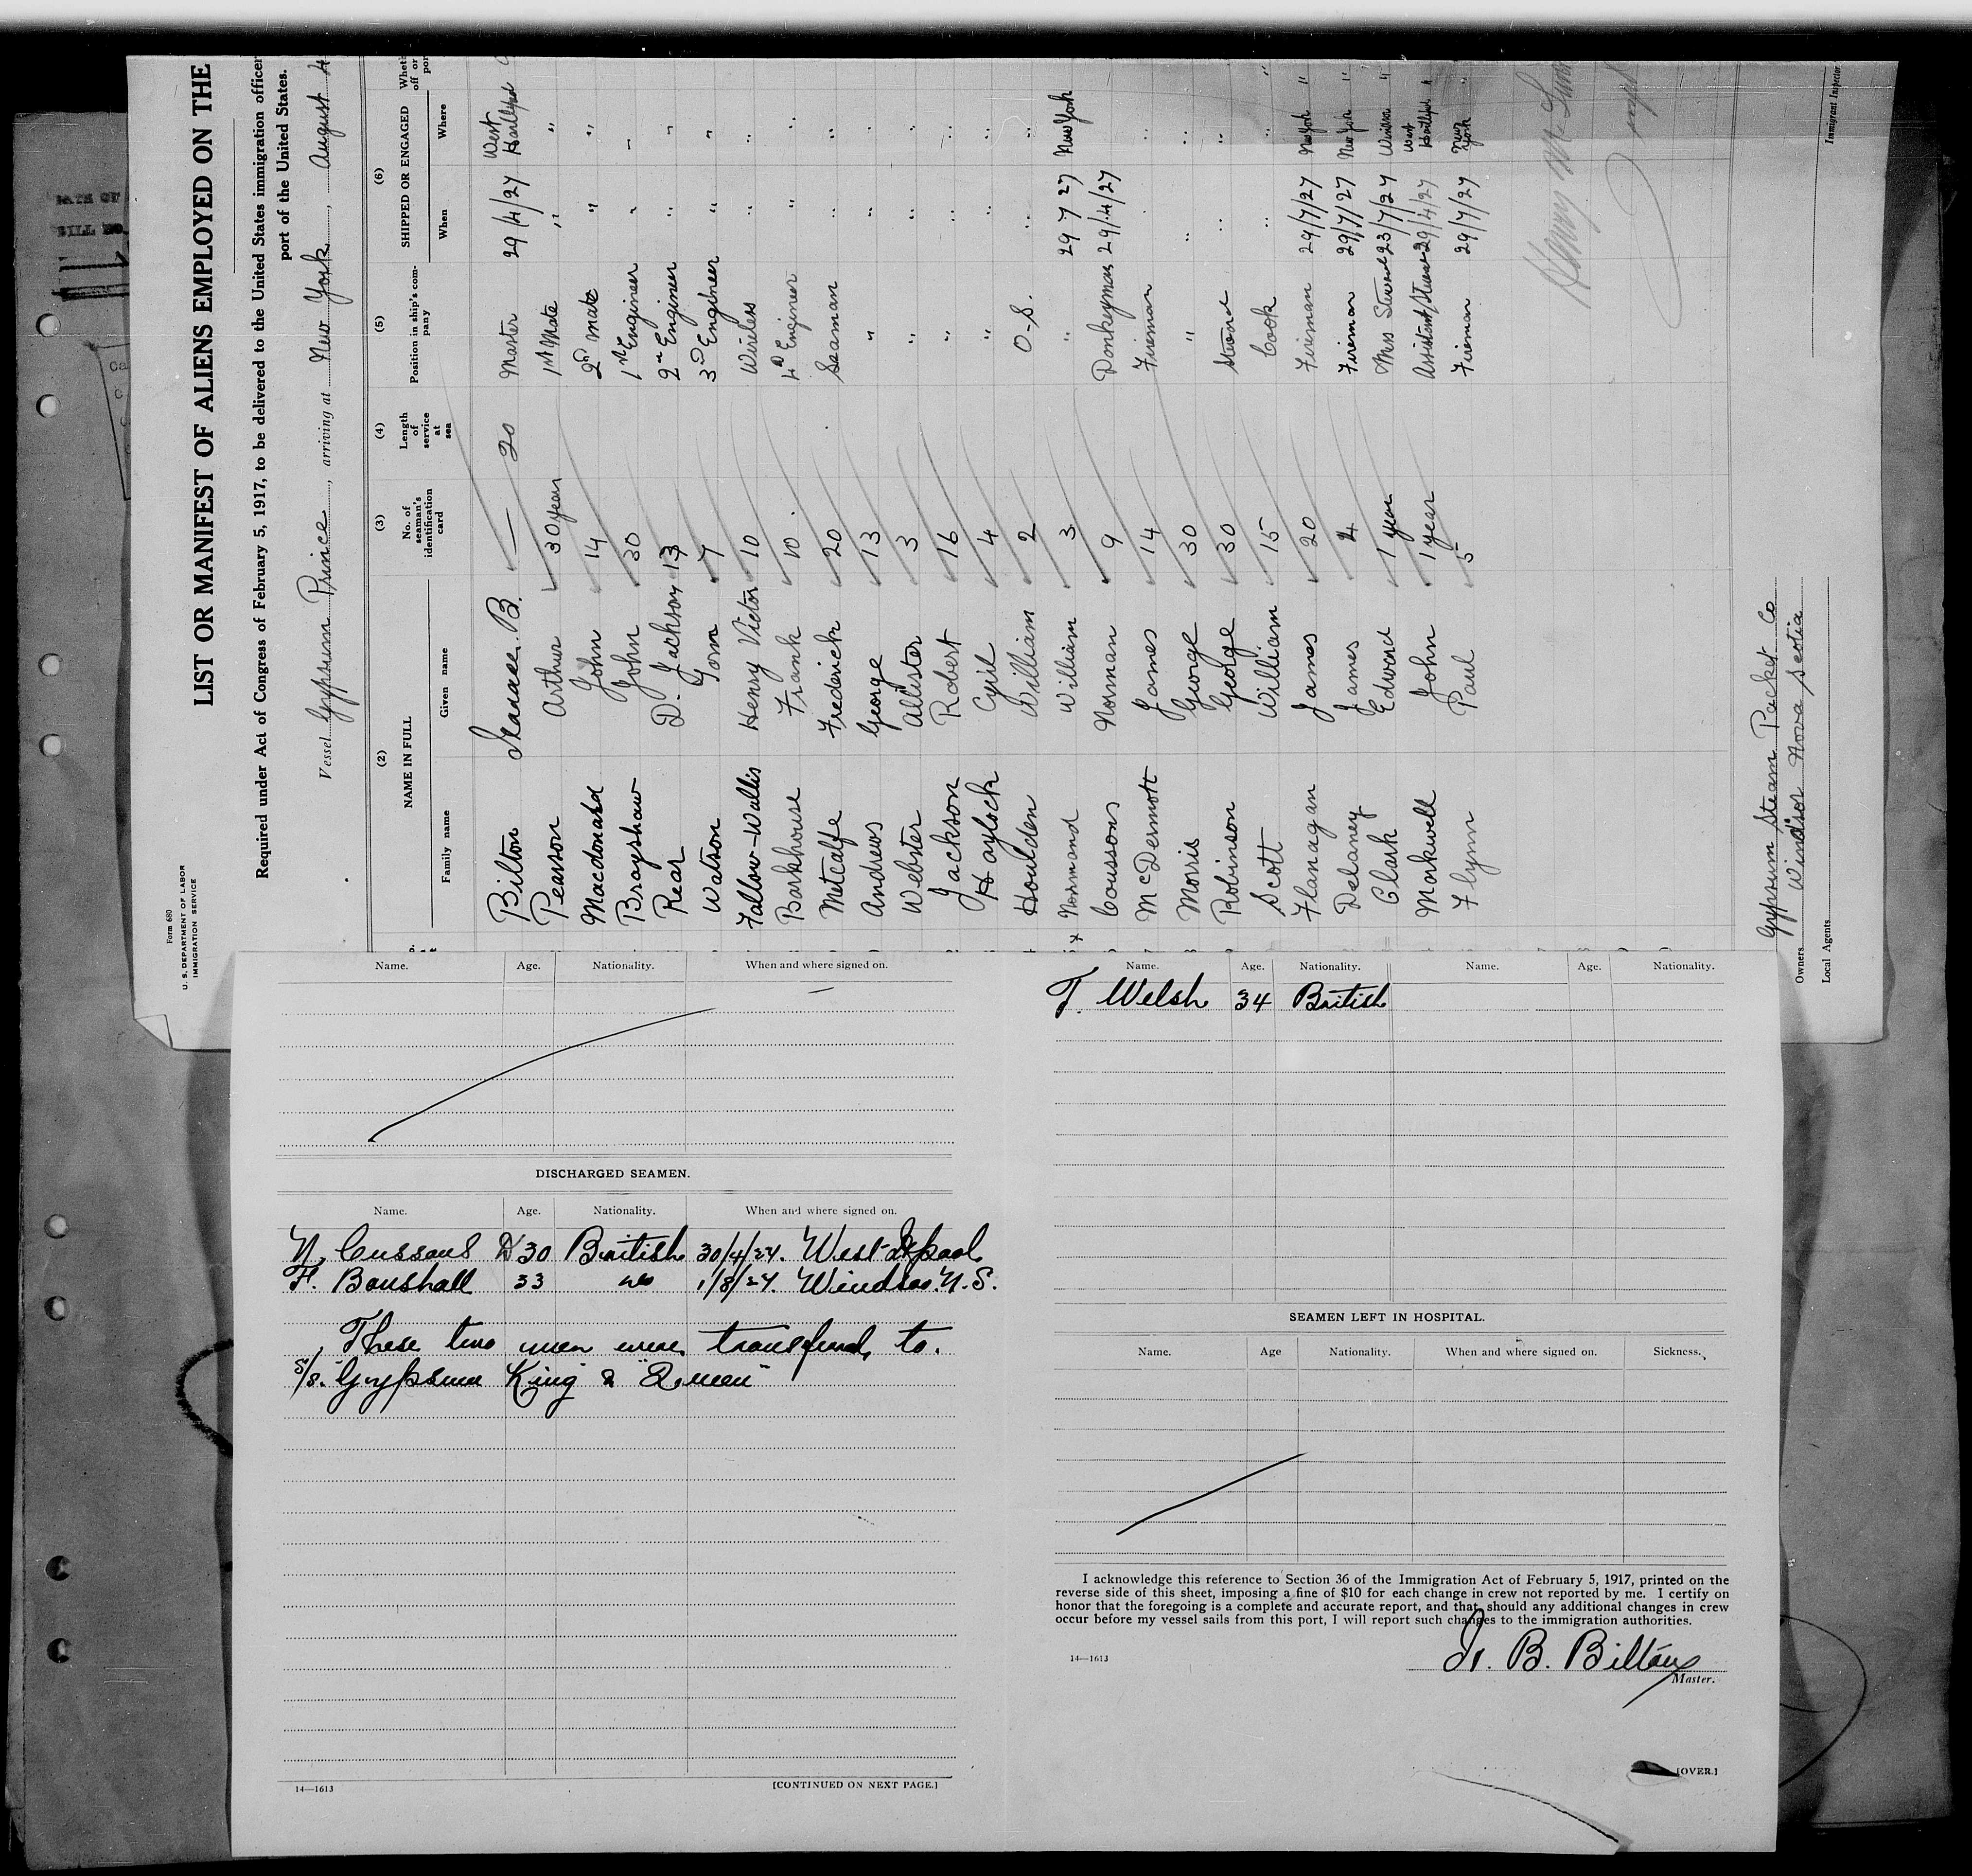 Form 680
U. S. DEPARTMENT OF LABOR
IMMIGRATION SERVICE
LIST OR MANIFEST OF ALIENS EMPLOYED ON THE
Required under Act of Congress of February 5, 1917, to be delivered to the United States immigration officer
port of the United States.
Vessel Gypsum Prince, arriving at New York, August 4
(2) (3) (4) (5) (6)
NAME IN FULL
Family name Given name
No. of seaman's identification card
Length of service at sea
Position in ship's company
SHIPPED OR ENGAGED
When Where
Bilton B. — 20 Master 29/4/27 West Hartlepool
Pearson Arthur 30 years 1st Mate " "
Macdonald John 14 2nd mate " "
Brayshaw John 30 1st Engineer " "
Rear D. Jackson 13 2nd Engineer " "
Watson Tom 7 3rd Engineer " "
Fallow-Wallis Henry Victor 10 Wireless " "
Barkhouse Frank 10 4th Engineer " "
Metcalfe Frederick 20 Seaman " "
Andrews George 13 " " "
Webster Allister 3 " " "
Jackson Robert 16 " " "
Haylock Cyril 4 " " "
Houlden William 2 O.S. " "
Normand William 3 " 29 7 27 New York
Coussons Norman 9 Donkeyman 29/4/27 "
McDermott James 14 Fireman "
Morris George 30 " " "
Robinson George 30 Steward " "
Scott William 15 Cook " "
Flanagan James 20 Fireman 29/7/27 New York "
Delaney James 4 Fireman 29/7/27 New York "
Clark Edward 1 year Mess Steward 23/7/27 Windsor "
Markwell John 1 year Assistant Steward 29/4/27 West Hartlepool "
Flynn Paul 5 Fireman 29/7/27 New York "
Henry
Immigrant Inspector
Gypsum Steam Packet Co
Owners Windsor Nova Scotia
Local Agents
Name. Age. Nationality. When and where signed on.
DISCHARGED SEAMEN.
Name. Age. Nationality. When and where signed on.
N. Cussons 30 British 30/4/27. West
F. Boushall 33 1/8/27. Windsor N.S.
These two men were transferred to.
S/S. "Gypsum King & "Queen"
14—1613
[CONTINUED ON NEXT PAGE.]
Name. Age. Nationality. Name. Age. Nationality.
T. Welsh 34 British
SEAMEN LEFT IN HOSPITAL.
Name. Age Nationality. When and where signed on. Sickness.
I acknowledge this reference to Section 36 of the Immigration Act of February 5, 1917, printed on the
reverse side of this sheet, imposing a fine of $10 for each change in crew not reported by me. I certify on
honor that the foregoing is a complete and accurate report, and that, should any additional changes in crew
occur before my vessel sails from this port, I will report such changes to the immigration authorities.
14—1613
B. Bilton
Master.
[OVER.]